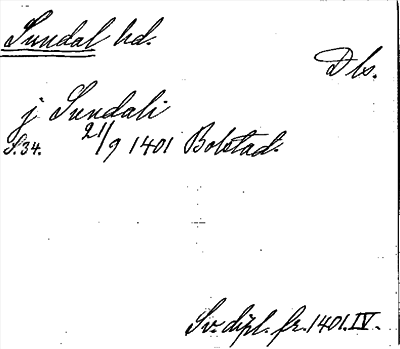 Sundal hd.
Dls.
j Sundali
S.34. 21/9 1401 Bolstad.
Sv. dipl. fr. 1401. IV.